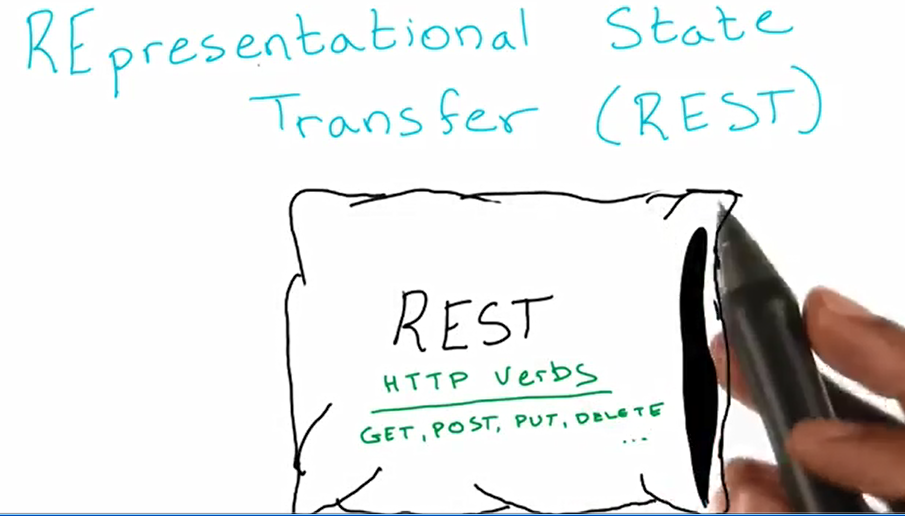 REpresentational State
Transfer (REST)
REST
HTTP Verbs
GET, POST, PUT, DELETE
...